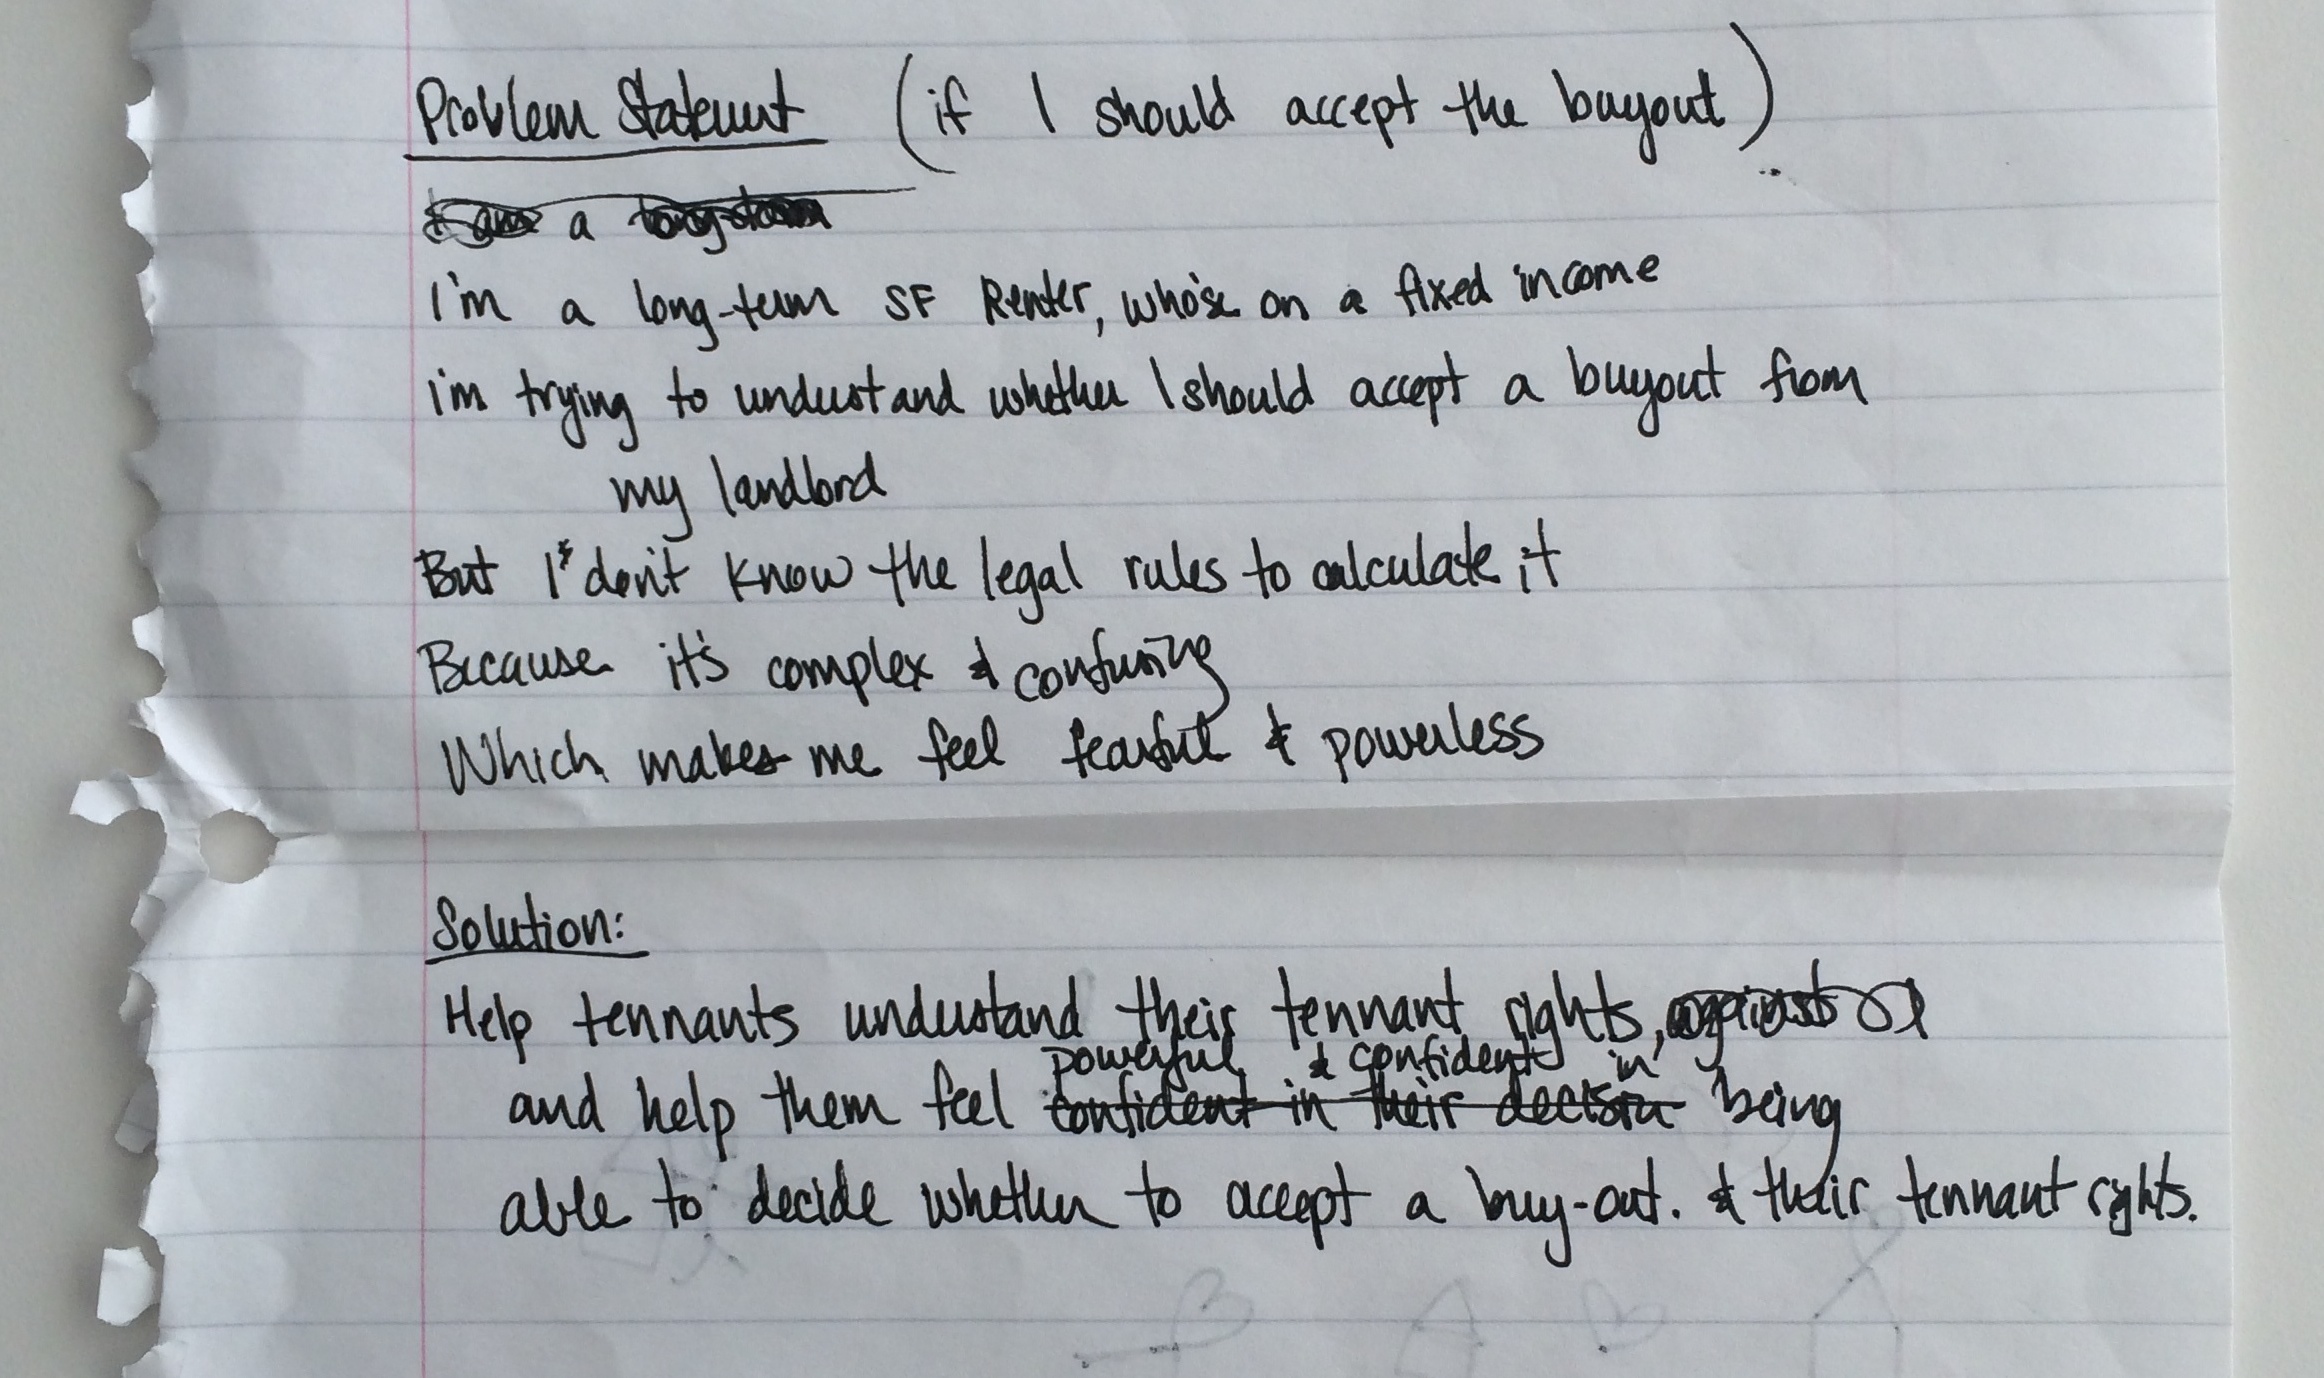 Problem Statement (if I should accept the buyout)
I am a long-term
I'm a long-term SF Renter, who's on a fixed income
i'm trying to understand whether I should accept a buyout from
my landlord
But I don't know the legal rules to calculate it
Because it's complex & confusing
Which makes me feel fearful & powerless
Solution:
Help tennants understand their tennant rights, against
powerful & confident in
and help them feel confident in their decision being
able to decide whether to accept a buy-out. & their tennant rights.